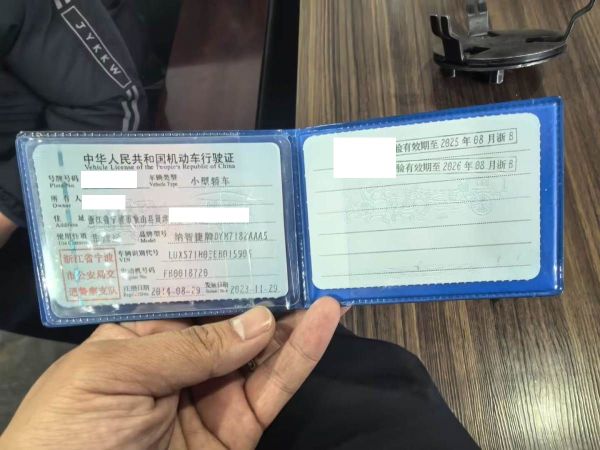 JYKKW
中华人民共和国机动车行驶证
Vehicle License of the People's Republic of China
号牌号码 Plate No. 车辆类型 Vehicle Type 小型轿车
所有人 Owner
住址 Address 浙江省宁波市象山县
使用性质 Use Character 品牌型号 Model 纳智捷牌DYM7182AAA5
浙江省宁波
市公安局交
通警察支队
车辆识别代号 VIN
发动机号码 FB0018720
注册日期 2014-08-29 发证日期 2023-11-29
验有效期至2025年08月浙B
验有效期至2026年08月浙B